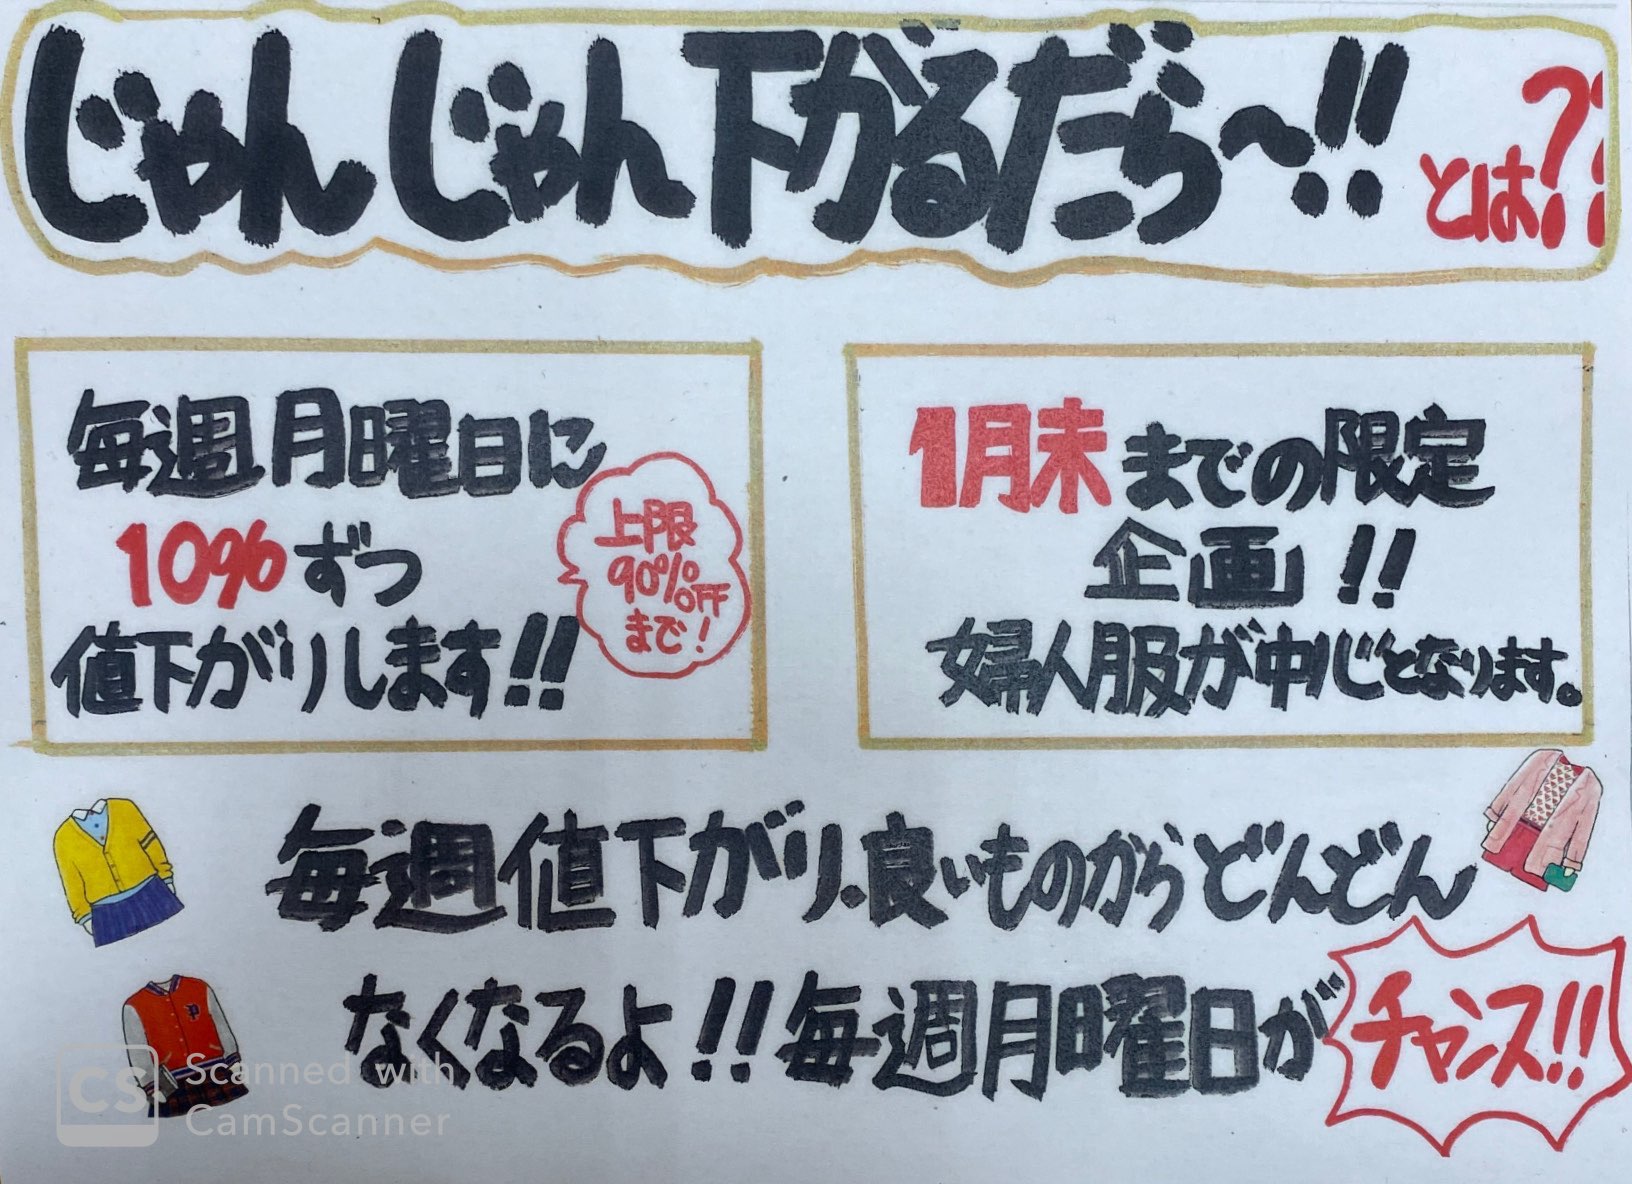 じゃんじゃん下がるだら〜!!とは??
毎週月曜日に
10%ずつ
値下がりします!!
上限
90%OFF
まで!
1月末までの限定
企画!!
婦人服が中心となります。
毎週値下がり、良いものからどんどん
なくなるよ!!毎週月曜日がチャンス!!
P
CS Scanned with
CamScanner